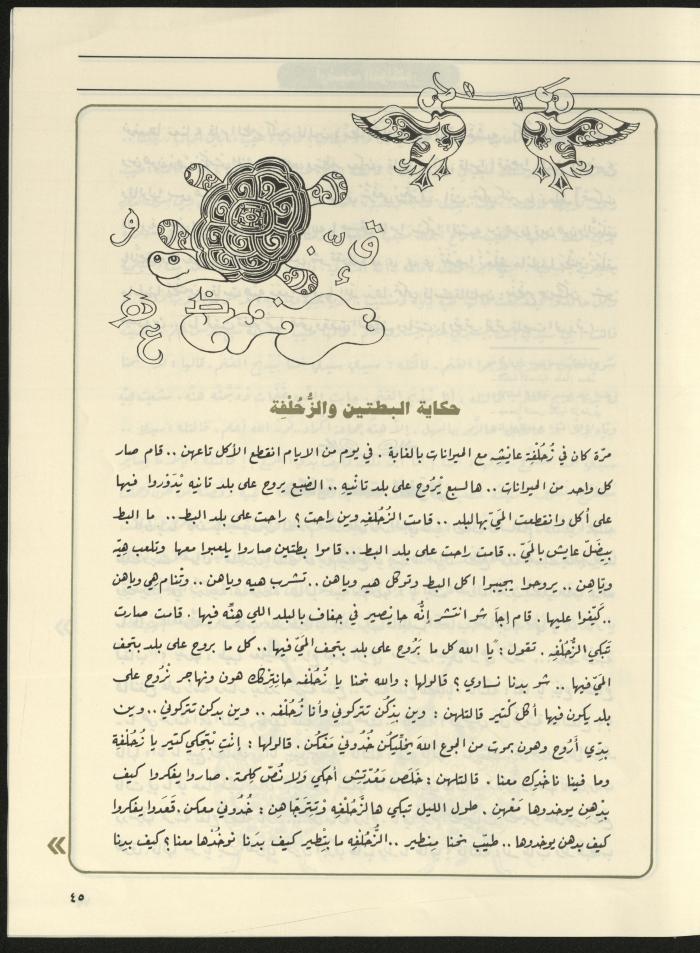 و
ق
س
إ
ن
ظ
ه
ع
حكاية البطتين والزُّحُلْفِة
مرّة كان في زُحُلْفِة عايشِه مع الحيوانات بالغابة . في يوم من الايام انقطع الأكل تاعهن .. قام صار
كل واحد من الحيوانات .. هالسبع يْرُوح على بلد تانيه .. الضبع يروح على بلد تانيه يْدَوْروا فيها
على أكل وانقطعت المَيّ بهالبلد .. قامت الزُحُلفِه وين راحت ؟ راحت على بلد البط .. ما البط
بِيضَلّ عايش بالمَيّ .. قامت راحت على بلد البط .. قاموا بطتين صاروا يلعبوا معها وتلعب هِيّه
ويّاهِن .. يروحوا يجيبوا أكل البط وتوكل هيه وياهن .. تشرب هيه وياهن .. وتْنام هِي وياهن
.. كَيّفوا عليها . قام إجا شو انتشر إنُّه حا يْصير في جفاف بالبلد اللي هِنِّه فيها . قامت صارت
تَبكي الزُّحُلْفِه . تقول : يا الله كل ما بَرُوح على بلد بتجف المَيّ فيها .. كل ما بروح على بلد بتجف
المَيّ فيها .. شو بدنا نساوي ؟ قالولها : والله نحنا يا زُحُلْفه حانِتِركك هون ونهاجر نْرُوح على
بلد يكون فيها أكل كْتير قالتلهن : وين بدْكُن تتركوني وأنا زُحُلْفه .. وين بدكن تتركوني .. وين
بدِّي أَرُوح وهون بموت من الجوع الله يْخَلِّيكُن خُدُوني مَعْكُن . قالولها : إنْتِ بْتِحكي كتير يا زُحُلْفِة
وما فينا ناخْدِك معنا . قالتلهن : خَلَص مَعُدْتِش أحكي وَلا نُصّ كِلمة . صاروا يفكروا كيف
بِدْهِن يوخدوها مَعْهِن . طول الليل تبكي هالزُّحُلْفِه وْتِبتَرَجّاهِن : خُدُوني معكن . قَعَدوا يفكروا
كيف بدهن يوخدوها .. طيّب نحنا مِنطير .. الزُّحُلْفِه ما بِتْطير كيف بدَنا نوخُدْها معنا ؟ كيف بِدِنا
٤٥